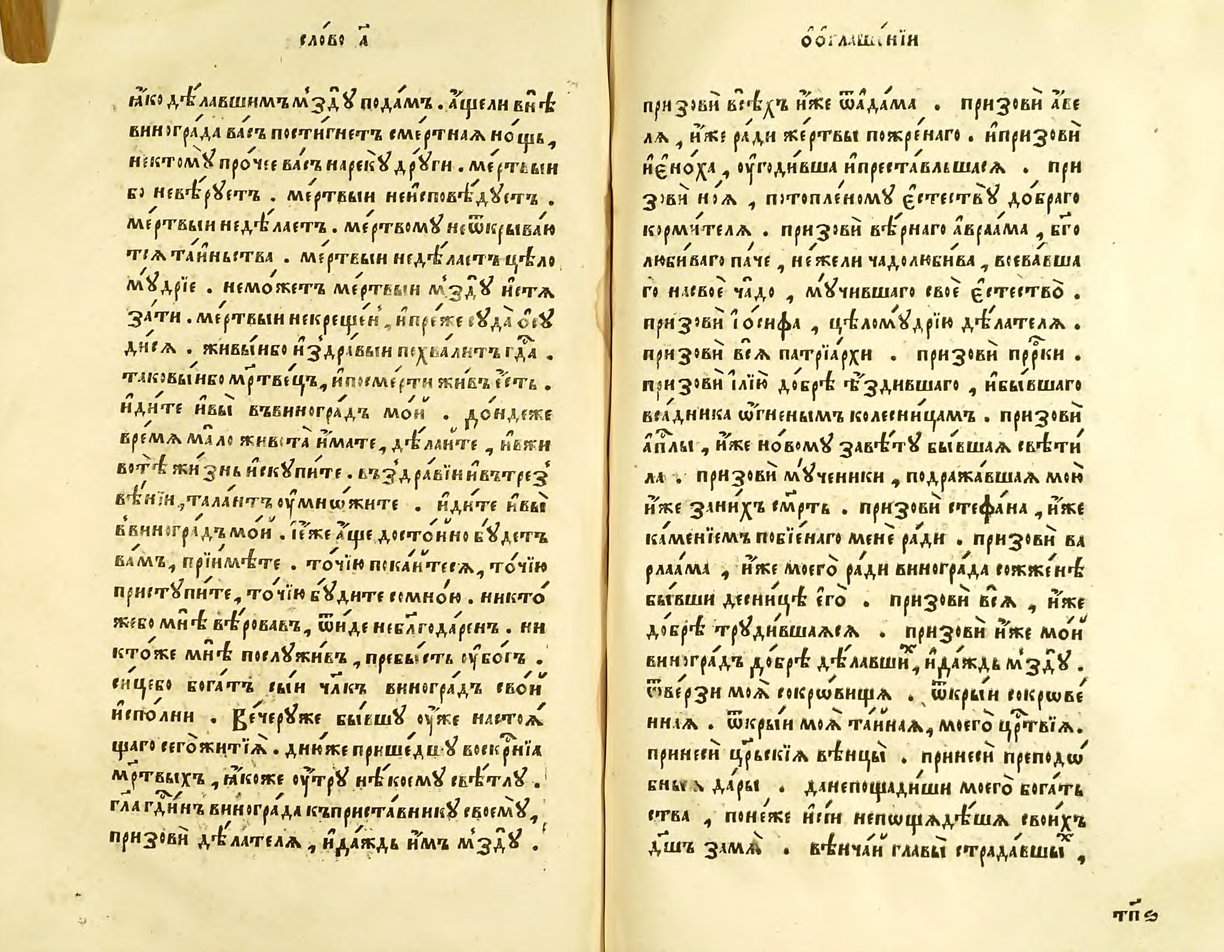 сло́во а҃
ꙗ҆́ко дѣ́лавшимъ м҆здꙋ̀ пода́мъ . а҆́щели внѣ̀
виногра́да ва́съ пости́гнетъ сме́ртнаѧ но́щь,
нектомꙋ̀ про́чее ва́съ нарекꙋ̀ дрꙋ́ги . ме́ртвыи
бо невѣ́рꙋетъ . ме́ртвыи неи҆сповѣ́дꙋетъ .
ме́ртвыи недѣ́лаетъ . ме́ртвомꙋ неѿкрыва́ю
тсѧ та́иньства . ме́ртвыи недѣ́лаетъ цѣ́ло
мꙋ́дрїе . немо́жетъ ме́ртвыи м҆здꙋ̀ и҆стѧ
за́ти . ме́ртвыи некреще́н, и҆пре́же сꙋда̀ ѡ҆сꙋ
ди́сѧ . живы́ибо и҆з̾дра́выи похва́литъ гд҃а .
таковы́ибо мр҃тве́цъ, и҆посме́рти жи́въ є҆́сть .
и҆ди́те и҆вы̀ въвиногра́дъ мо́й . до́ндеже
вре́мѧ ма́ло живота̀ и҆́мате, дѣ́лаите, и҆вжи
вотѣ̀ жи́знь и҆скꙋпи́те . въз̾дра́вїи и҆втрез̾
вѣ́нїи, тала́нтъ ᲂу҆мно́жите . и҆ди́те и҆вы̀
в̾виногра́дъ мо́й . і҆є́же а҆́ще досто́йно бꙋ́детъ
ва́мъ, прїи́мѣте . то́чїю пока́йтесѧ, то́чїю
пристꙋпи́те, то́чїю бꙋ́дите сомно́ю . никто́
жебо мнѣ̀ вѣ́ровавъ, ѿи́де небл҃года́ренъ . ни
кто́же мнѣ̀ послꙋжи́въ, пребы́сть ᲂу҆бо́гъ .
си́цебо бога́тъ сы́и чл҃къ виногра́дъ сво́й
и҆спо́лни . Ве́черꙋже бы́вшꙋ ᲂу҆́же настоѧ́
щаго сего̀ житїѧ̀ . дню́же прише́дшꙋ воскр҃нїа
мр҃твыхъ, ꙗ҆́коже ᲂу҆́трꙋ нѣ́коемꙋ свѣ́тлꙋ .
гл҃а гд҃и́нъ виногра́да къприста́вникꙋ своемꙋ̀,
призовѝ дѣ́лателѧ, и҆да́ждь и҆̀мъ м҆здꙋ̀ .
ѡ҆ѡ҆глаше́нїи
призовѝ всѣ́хъ и҆́же ѿа҆да́ма . призовѝ а҆́ве
лѧ, и҆́же ра́ди же́ртвы пожре́наго . и҆призовѝ
и҆є҆но́ха, ᲂу҆годи́вша и҆преста́вльшасѧ . при
зовѝ но́ѧ, потопле́номꙋ є҆стествꙋ̀ до́браго
ко́рмителѧ . призовѝ вѣ́рнаго а҆враа́ма, бг҃о
люби́ваго па́че, не́жели чадолюби́ва, воева́вша
го насвоѐ ча́до, мꙋ́чившаго своѐ є҆стество̀ .
призовѝ і҆о́сифа, цѣломꙋ́дрїю дѣ́лателѧ .
призовѝ всѧ̀ патрїа́рхи . призовѝ пр҃ро́ки .
призовѝ і҆лїю̀ до́брѣ ѣ҆́здившаго, и҆бы́вшаго
вса́дника ѻ҆́гненымъ колесни́цамъ . призовѝ
а҆п҃лы, и҆́же но́вомꙋ завѣ́тꙋ бы́вшаѧ свѣти́
ла . призовѝ мꙋ́ченики, подража́вшаѧ мою̀
и҆́же зани́хъ см҃рть . призовѝ стефа́на, и҆́же
ка́менїемъ побїе́наго менѐ ра́ди . призовѝ ва
рлаа́ма, и҆́же моего̀ ра́ди виногра́да сожже́нѣ
бы́вши десни́цѣ є҆го̀ . призовѝ всѧ̀, и҆́же
до́брѣ трꙋди́вшаѧсѧ . призовѝ и҆́же мо́й
виногра́дъ до́брѣ дѣ́лавшиⷯ, и҆да́ждь м҆здꙋ̀ .
ѿве́рзи моѧ̀ сокрѡ́вищѧ . ѿкры́и сокрѡве́
ннаѧ . ѿкры́и моѧ̀ та́йнаѧ, моего̀ цр҃твїѧ .
принесѝ цр҃ьскїѧ вѣнцы̀ . принесѝ преподѡ́
бныѧ да́ры . данепощади́ши моего̀ бога́ть
ства, поне́же и҆сїи непощѧдѣ́шѧ свои́хъ
дш҃ъ замѧ̀ . вѣнча́й главы̀ страда́вшыⷯ,
тп҃ѳ